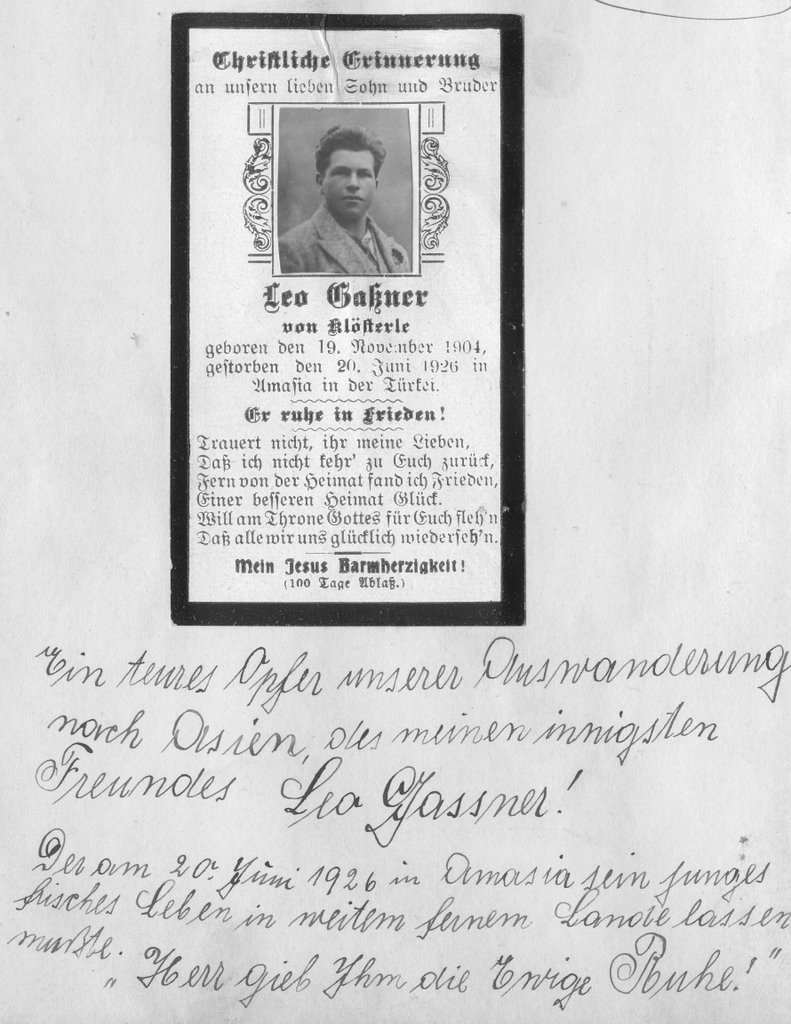 Christliche Erinnerung
an unsern lieben Sohn und Bruder
Leo Gaßner
von Klösterle
geboren den 19. November 1904,
gestorben den 20. Juni 1926 in
Amasia in der Türkei.
Er ruhe in Frieden!
Trauert nicht, ihr meine Lieben,
Daß ich nicht kehr' zu Euch zurück,
Fern von der Heimat fand ich Frieden,
Einer besseren Heimat Glück.
Will am Throne Gottes für Euch fleh'n
Daß alle wir uns glücklich wiederseh'n.
Mein Jesus Barmherzigkeit!
(100 Tage Ablaß.)
Ein teures Opfer unserer Auswanderung
nach Asien, des meinen innigsten
Freundes Leo Gassner!
Der am 20. Juni 1926 in Amasia sein junges
frisches Leben in weitem fernem Lande lassen
mußte.
"Herr gieb Ihm die Ewige Ruhe!"